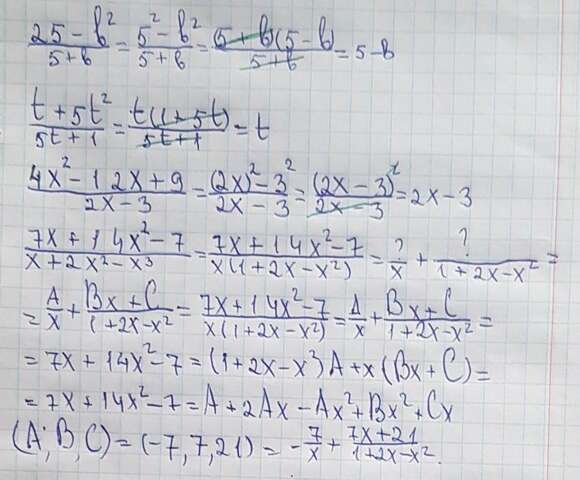 (25 - b²)/(5 + b) = (5² - b²)/(5 + b) = ((5 + b)(5 - b))/(5 + b) = 5 - b
(t + 5t²)/(5t + 1) = (t(1 + 5t))/(5t + 1) = t
(4x² - 12x + 9)/(2x - 3) = ((2x)² - 3²)/(2x - 3) = ((2x - 3)²)/(2x - 3) = 2x - 3
(7x + 14x² - 7)/(x + 2x² - x³) = (7x + 14x² - 7)/(x(1 + 2x - x²)) = ?/x + ?/(1 + 2x - x²) =
= A/x + (Bx + C)/(1 + 2x - x²) = (7x + 14x² - 7)/(x(1 + 2x - x²)) = A/x + (Bx + C)/(1 + 2x - x²) =
= 7x + 14x² - 7 = (1 + 2x - x²)A + x(Bx + C) =
= 7x + 14x² - 7 = A + 2Ax - Ax² + Bx² + Cx
(A; B, C) = (-7, 7, 21) = -7/x + (7x + 21)/(1 + 2x - x²).